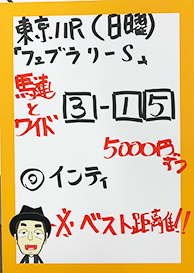 東京11R(日曜)
「フェブラリーS」
馬連とワイド
3-15
5000円ずつ
◎インティ
※ベスト距離!!